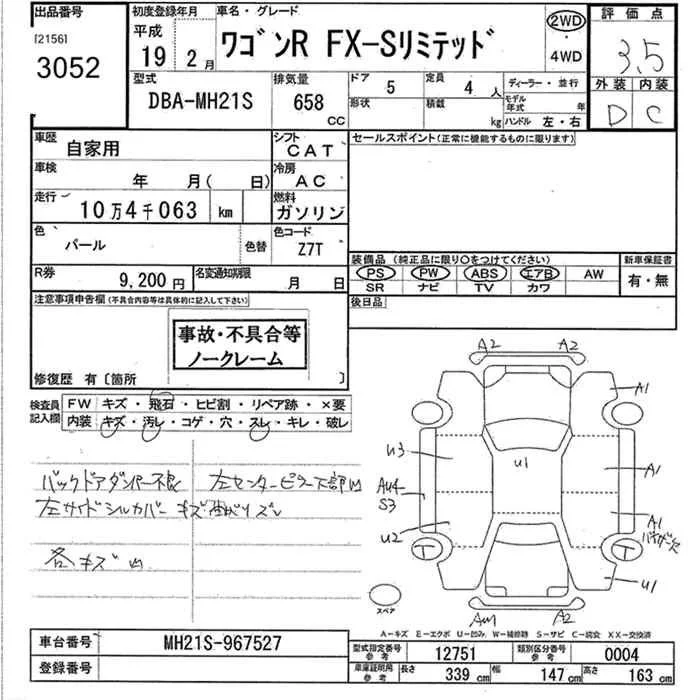 出品番号
[2156]
3052
初度登録年月
平成
19 2 月
車名・グレード
ワゴンR FX-Sリミテッド
2WD
・
4WD
評価点
3.5
外装 内装
D C
型式
DBA-MH21S
排気量
658
CC
ドア 5
定員 4 人
ディーラー・並行
形状
積載 kg
モデル年式 年
ハンドル 左・右
車歴
自家用
シフト
CAT
車検
年 月( 日)
冷房
AC
走行
10万4千063 km
燃料
ガソリン
色
パール
色替
色コード
Z7T
R券
9,200円
名変通知期限
月 日
セールスポイント(正常に機能するものに限ります)
装備品 (純正品に限り○をつけてください)
PS PW ABS エアB AW
SR ナビ TV カワ
新車保証書
有・無
後日品
注意事項申告欄(不具合内容等は具体的に記入して下さい)
事故・不具合等
ノークレーム
修復歴 有〔箇所 〕
検査員
記入欄
FW キズ・飛石・ヒビ割・リペア跡・×要
内装 キズ・汚レ・コゲ・穴・スレ・キレ・破レ
バックドアダンパー不良
左センターピラー下部凹
左サイドシルカバー キズ 曲がり ズレ
各キズ凹
A2 A2
A1
U3
U1
A1
AU4
S3
A1
U2
T T
U1
A2
スペア
A-キズ E-エクボ U-凹み W-補修跡 S-サビ C-腐食 XX-交換済
車台番号
MH21S-967527
登録番号
型式指定番号
参考
12751
類別区分番号
参考
0004
車庫証明用
参考
長さ 339 cm
幅 147 cm
高さ 163 cm